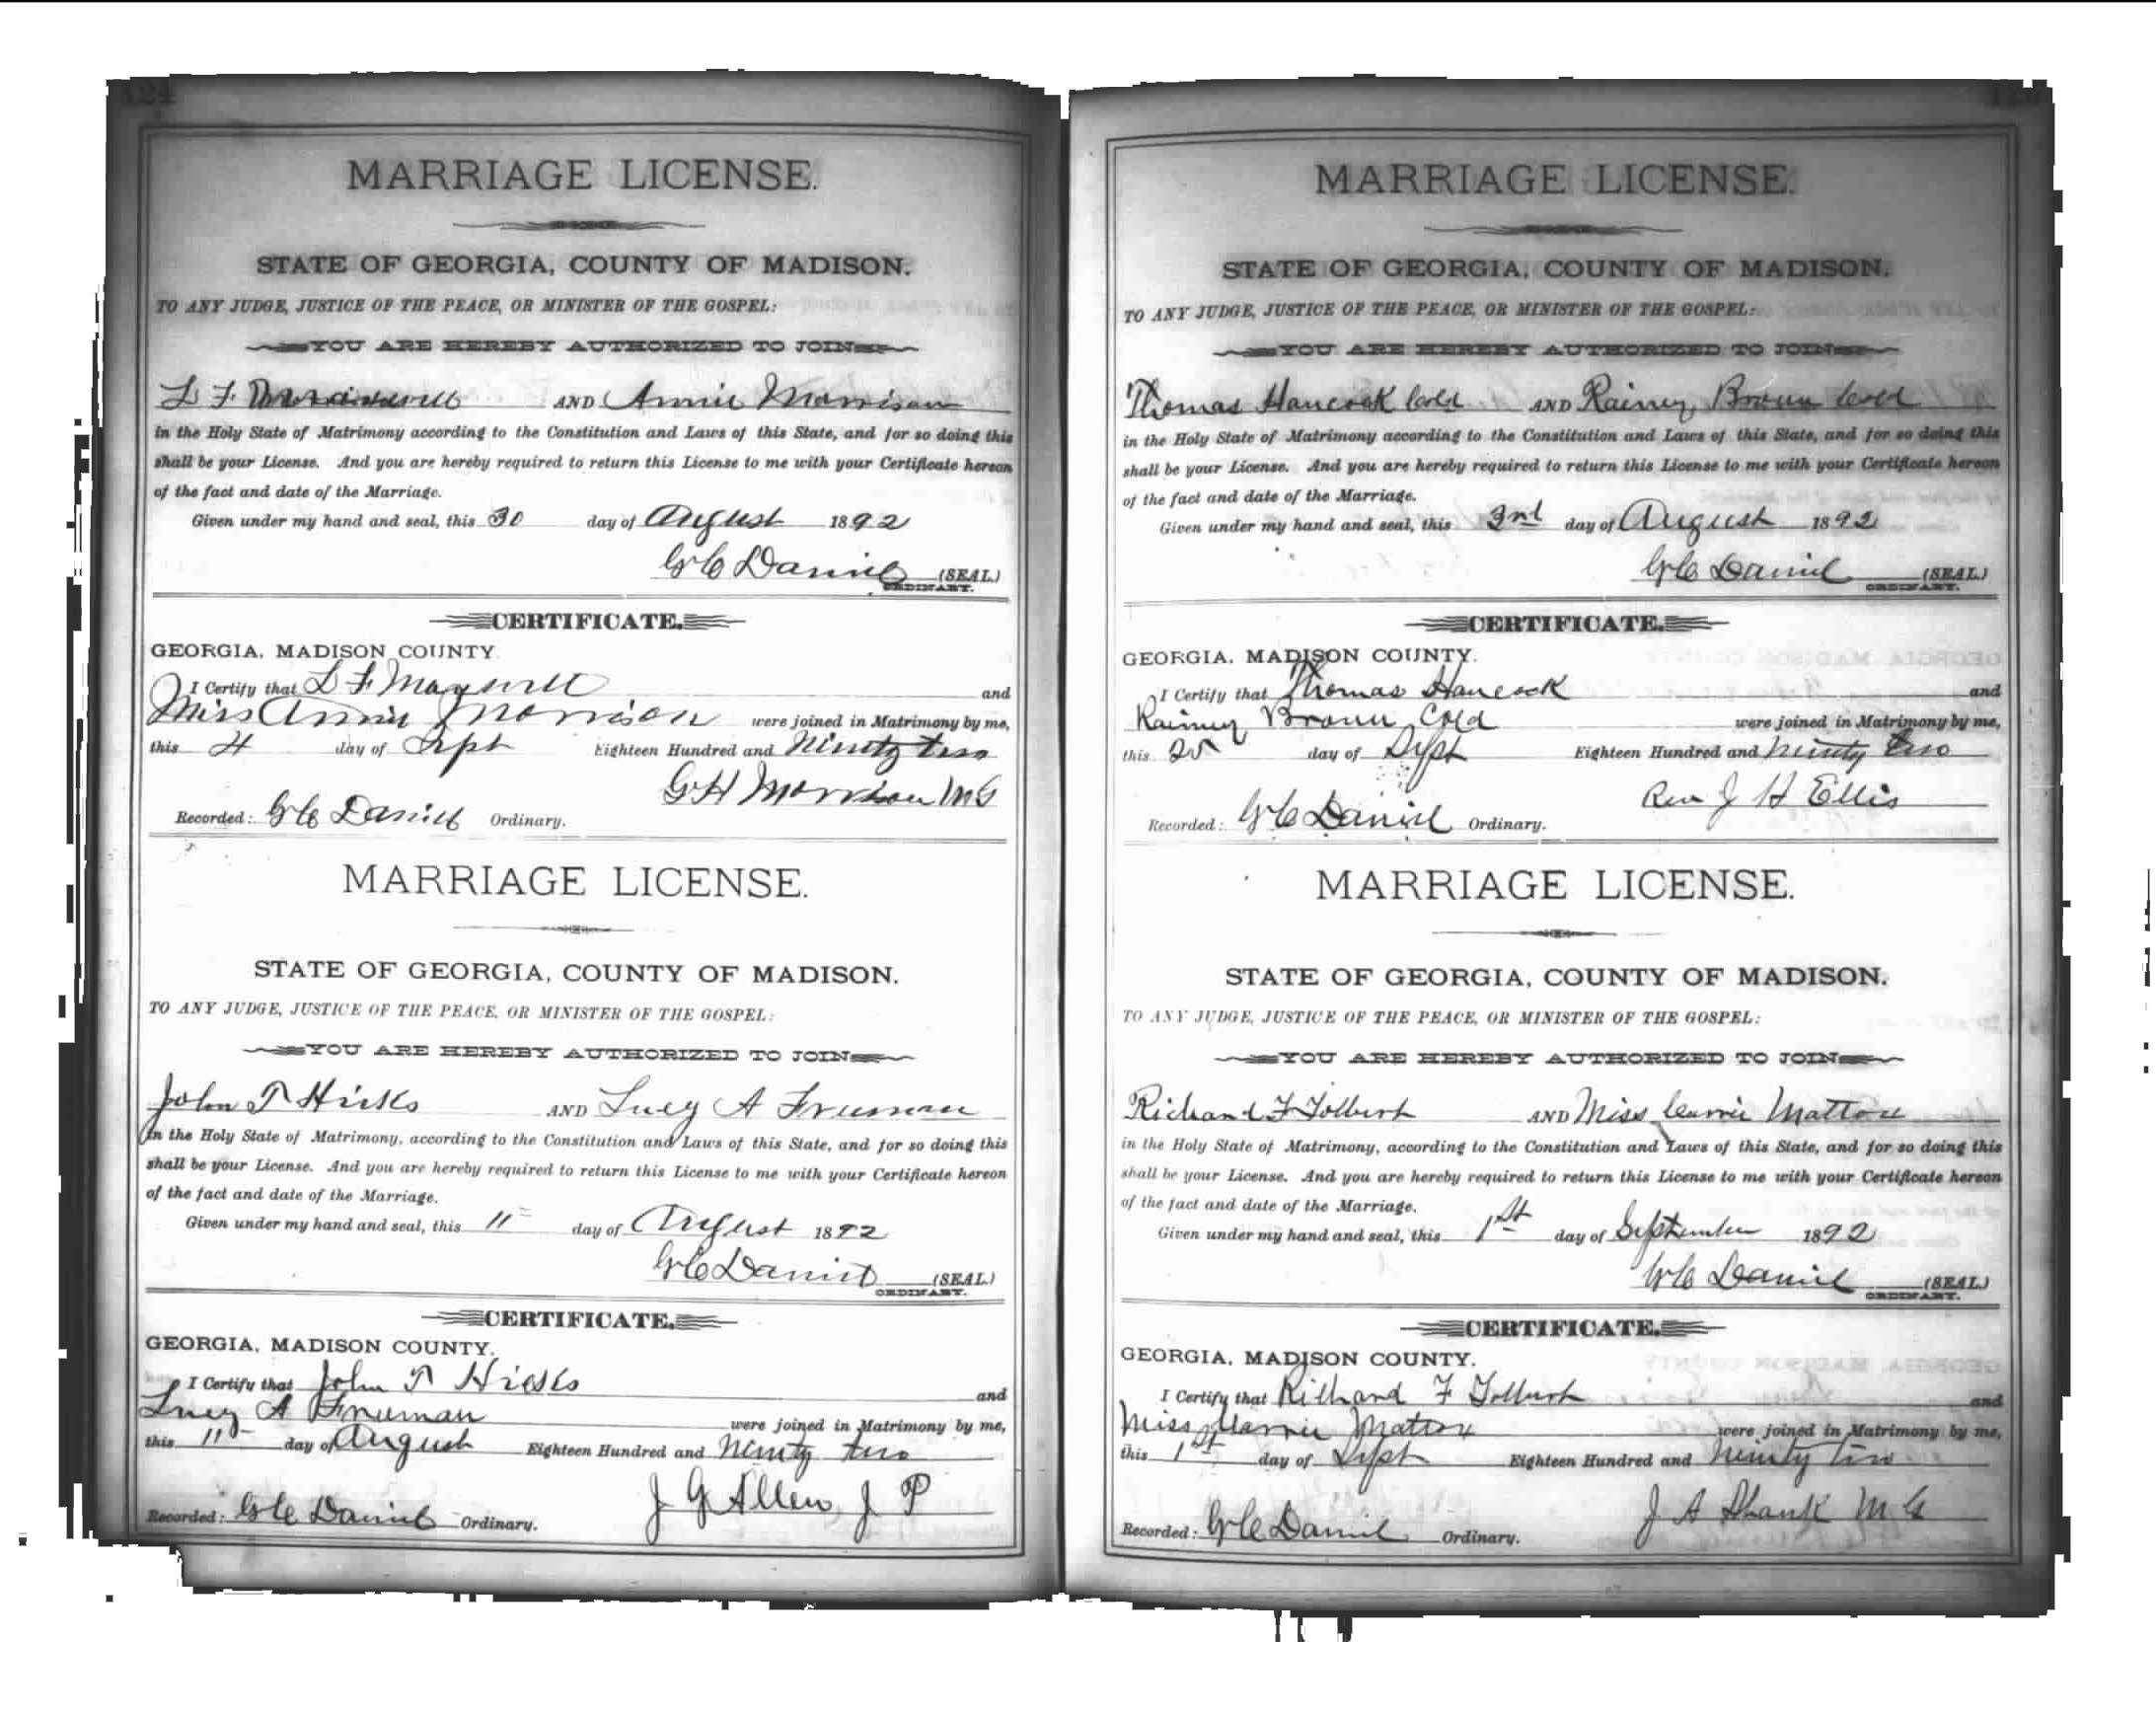 MARRIAGE LICENSE.
STATE OF GEORGIA, COUNTY OF MADISON.
TO ANY JUDGE, JUSTICE OF THE PEACE, OR MINISTER OF THE GOSPEL:
YOU ARE HEREBY AUTHORIZED TO JOIN
L F AND Annie Morrison
in the Holy State of Matrimony according to the Constitution and Laws of this State, and for so doing this
shall be your License. And you are hereby required to return this License to me with your Certificate hereon
of the fact and date of the Marriage.
Given under my hand and seal, this 30 day of August 1892
G C Daniel (SEAL.)
ORDINARY.
CERTIFICATE.
GEORGIA, MADISON COUNTY.
I Certify that L F Maxwell and
Miss Annie Morrison were joined in Matrimony by me,
this 4 day of Sept Eighteen Hundred and Ninety two
G H Morrison M G
Recorded: G C Daniel Ordinary.
MARRIAGE LICENSE.
STATE OF GEORGIA, COUNTY OF MADISON.
TO ANY JUDGE, JUSTICE OF THE PEACE, OR MINISTER OF THE GOSPEL:
YOU ARE HEREBY AUTHORIZED TO JOIN
John T Hicks AND Lucy A Freeman
in the Holy State of Matrimony, according to the Constitution and Laws of this State, and for so doing this
shall be your License. And you are hereby required to return this License to me with your Certificate hereon
of the fact and date of the Marriage.
Given under my hand and seal, this 11 day of August 1892
G C Daniel (SEAL.)
ORDINARY.
CERTIFICATE.
GEORGIA, MADISON COUNTY.
I Certify that John T Hicks and
Lucy A Freeman were joined in Matrimony by me,
this 11 day of August Eighteen Hundred and Ninety two
J G Allen, J P
Recorded: G C Daniel Ordinary.
MARRIAGE LICENSE.
STATE OF GEORGIA, COUNTY OF MADISON.
TO ANY JUDGE, JUSTICE OF THE PEACE, OR MINISTER OF THE GOSPEL:
YOU ARE HEREBY AUTHORIZED TO JOIN
Thomas Hancock Cold AND Rainey Brown Cold
in the Holy State of Matrimony according to the Constitution and Laws of this State, and for so doing this
shall be your License. And you are hereby required to return this License to me with your Certificate hereon
of the fact and date of the Marriage.
Given under my hand and seal, this 3rd day of August 1892
G C Daniel (SEAL.)
ORDINARY.
CERTIFICATE.
GEORGIA, MADISON COUNTY.
I Certify that Thomas Hancock and
Rainey Brown Cold were joined in Matrimony by me,
this day of Sept Eighteen Hundred and ninety two
Rev J H Ellis
Recorded: G C Daniel Ordinary.
MARRIAGE LICENSE.
STATE OF GEORGIA, COUNTY OF MADISON.
TO ANY JUDGE, JUSTICE OF THE PEACE, OR MINISTER OF THE GOSPEL:
YOU ARE HEREBY AUTHORIZED TO JOIN
Richard F Tolbert AND Miss Carrie Mattox
in the Holy State of Matrimony, according to the Constitution and Laws of this State, and for so doing this
shall be your License. And you are hereby required to return this License to me with your Certificate hereon
of the fact and date of the Marriage.
Given under my hand and seal, this 1st day of September 1892
G C Daniel (SEAL.)
ORDINARY.
CERTIFICATE.
GEORGIA, MADISON COUNTY.
I Certify that Richard F Tolbert and
Miss Carrie Mattox were joined in Matrimony by me,
this 1st day of Sept Eighteen Hundred and Ninety two
J A Shank M G
Recorded: G C Daniel Ordinary.